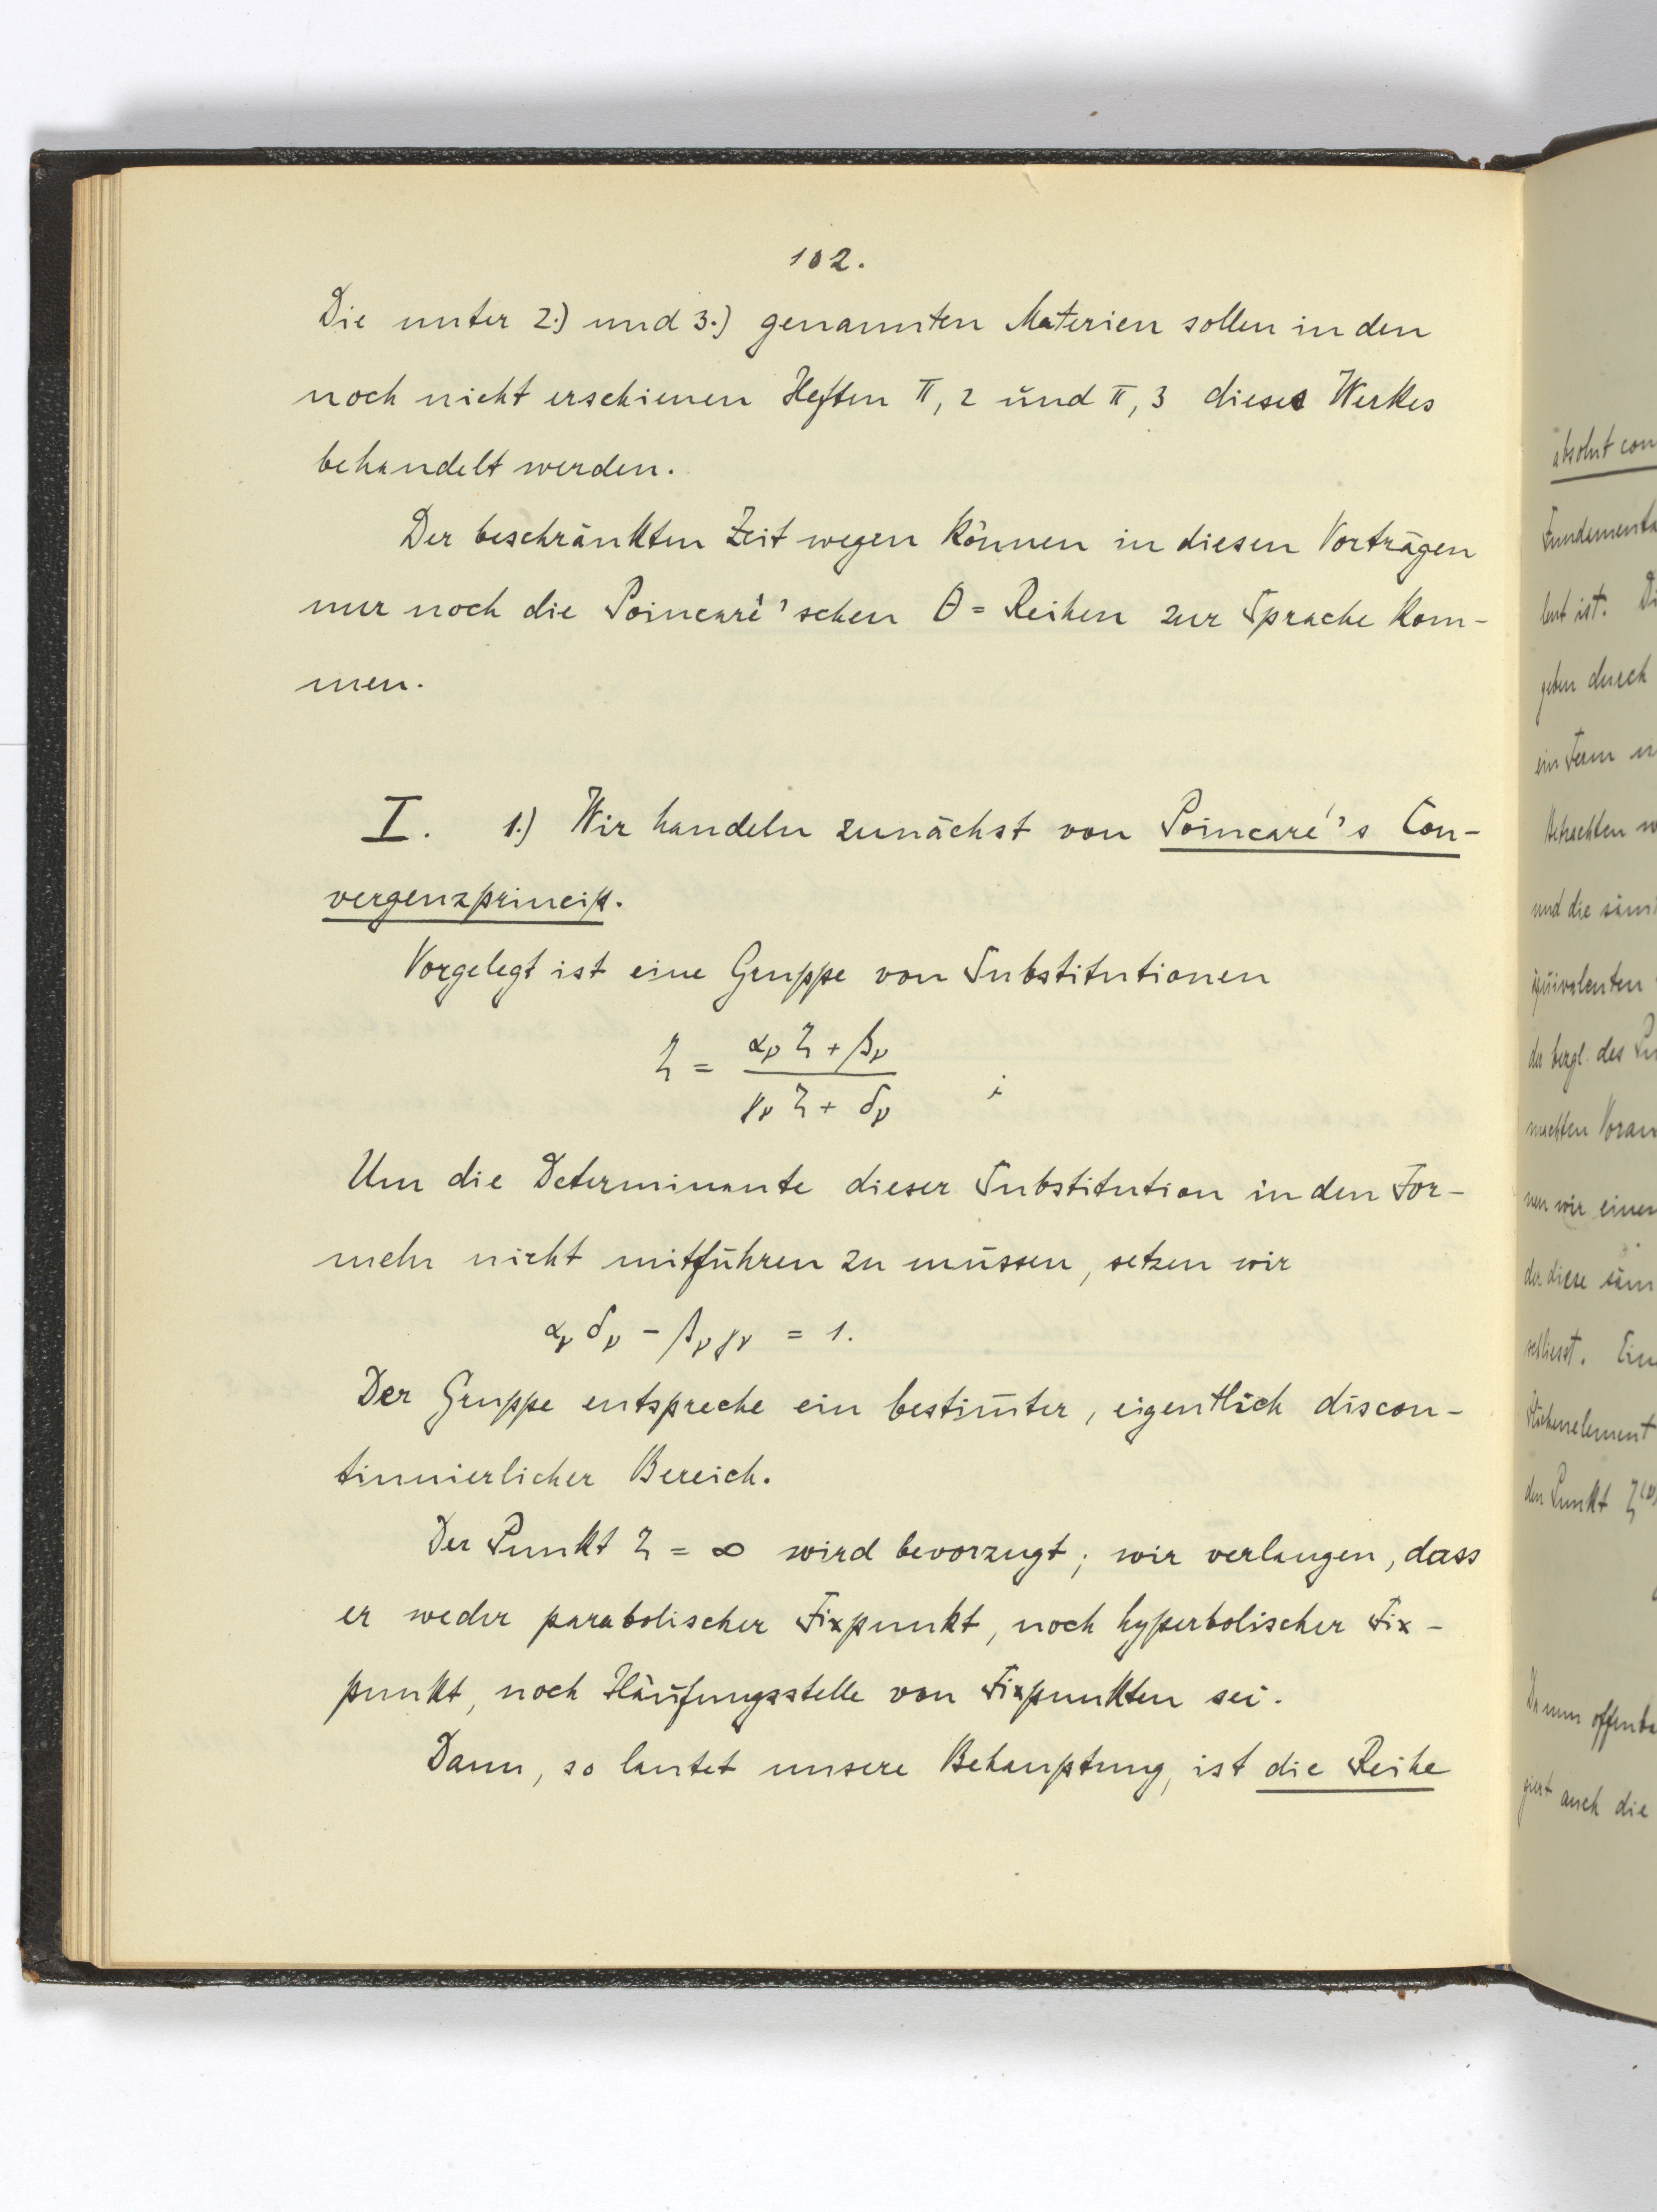 102.
Die unter 2.) und 3.) genannten Materien sollen in den
noch nicht erschienen Heften II, 2 und II, 3 dieses Werkes
behandelt werden.
Der beschränkten Zeit wegen können in diesen Vorträgen
nur noch die Poincaré'schen θ = Reihen zur Sprache kom-
men.
I. 1.) Wir handeln zunächst von Poincaré's Con-
vergenzprincip.
Vorgelegt ist eine Gruppe von Substitutionen
ζ = (α_ν ζ + β_ν) / (γ_ν ζ + δ_ν) ;
Um die Determinante dieser Substitution in den For-
meln nicht mitführen zu müssen, setzen wir
α_ν δ_ν - β_ν γ_ν = 1.
Der Gruppe entspreche ein bestim̄ter, eigentlich discon-
tinuierlicher Bereich.
Der Punkt ζ = ∞ wird bevorzugt; wir verlangen, dass
er weder parabolischer Fixpunkt, noch hyperbolischer Fix-
punkt, noch Häufungsstelle von Fixpunkten sei.
Dann, so lautet unsere Behauptung, ist die Reihe
absolut con
Fundamenta
lent ist. Di
geben durch
ein Term
Betrachten w
und die säm
äquivalenten
der bergl. des Pu
machten Voran
nen wir einen
der diese säm
schliesst. Ein
Flächenelement
den Punkt ζ^(ν)
Da nun offenba
giert auch die